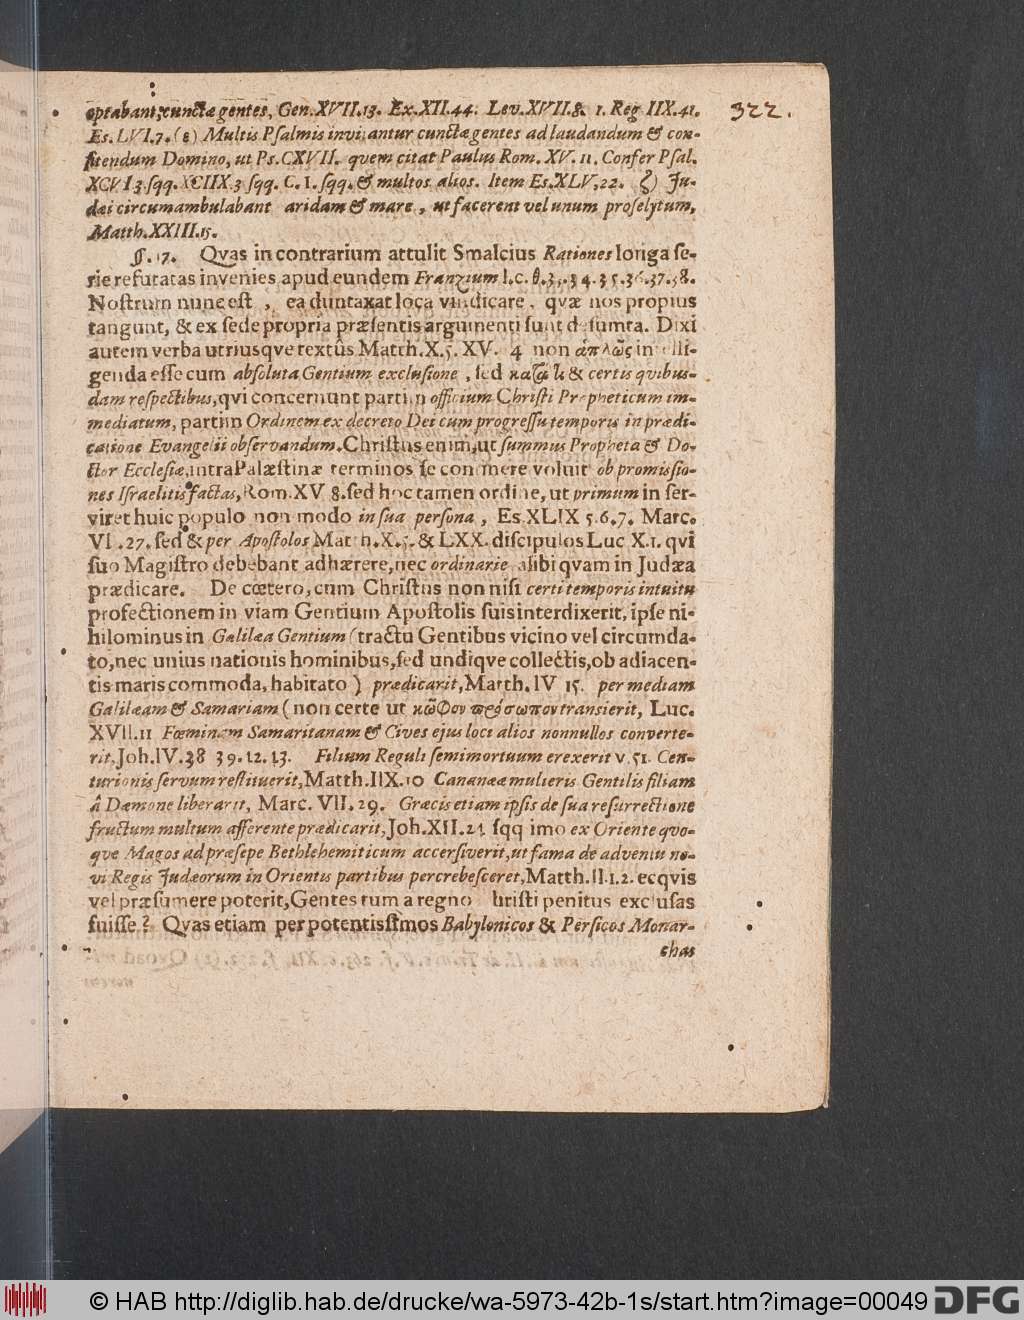 optabant, cunctæ gentes, Gen. XVII. 13. Ex. XII. 44. Lev. XVII. 8. 1. Reg. IIX. 41.
322.
Es. LVI. 7. (ε) Multis Psalmis invitantur cunctæ gentes ad laudandum & con-
fitendum Domino, ut Ps. CXVII. quem citat Paulus Rom. XV. 11. Confer Psal.
XCVI 3 sqq. XCIIX. 3 sqq. C. 1. sqq. & multos alios. Item Es. XLV, 22. ζ) Ju-
dæi circumambulabant aridam & mare, ut facerent vel unum proselytum,
Matth. XXIII. 15.
§. 17. Qvas in contrarium attulit Smalcius Rationes longa se-
rie refutatas invenies apud eundem Franzium l. c. θ. 34. 35. 36. 37. 38.
Nostrum nunc est, ea duntaxat loca vindicare, qvæ nos propius
tangunt, & ex sede propria præsentis argumenti sunt desumta. Dixi
autem verba utriusqve textûs Matth. X. 5. XV. 4 non ἁπλῶς intelli-
genda esse cum absoluta Gentium exclusione, sed & certis qvibus-
dam respectibus, qvi concernunt partim officium Christi Propheticum im-
mediatum, partim Ordinem ex decreto Dei cum progressu temporis in prædi-
catione Evangelii observandum. Christus enim, ut summus Propheta & Do-
ctor Ecclesiæ, intra Palæstinæ terminos se continere voluit ob promissio-
nes Israelitis factas, Rom. XV 8. sed hoc tamen ordine, ut primum in ser-
viret huic populo non modo in sua persona, Es. XLIX 5. 6. 7. Marc.
VI. 27. sed & per Apostolos Matth. X. 5. & LXX. discipulos Luc X. 1. qvi
suo Magistro debebant adhærere, nec ordinarie alibi qvam in Judæa
prædicare. De cœtero, cum Christus non nisi certi temporis intuitu
profectionem in viam Gentium Apostolis suis interdixerit, ipse ni-
hilominus in Galilæa Gentium (tractu Gentibus vicino vel circumda-
to, nec unius nationis hominibus, sed undiqve collectis, ob adiacen-
tis maris commoda, habitato) prædicarit, Matth. IV 15. per mediam
Galilæam & Samariam (non certe ut κωφὸν πρόσωπον transierit, Luc.
XVII. 11 Fœminam Samaritanam & Cives ejus loci alios nonnullos converte-
rit, Joh. IV. 38 39. 12. 13. Filium Reguli semimortuum erexerit v. 51. Cen-
turionis servum restituerit, Matth. IIX. 10 Cananææ mulieris Gentilis filiam
â Dæmone liberarit, Marc. VII. 29. Græcis etiam ipsis de sua resurrectione
fructum multum afferente prædicarit, Joh. XII. 21 sqq imo ex Oriente qvo-
qve Magos ad præsepe Bethlehemiticum accersiverit, ut fama de adventu no-
vi Regis Judæorum in Orientis partibus percrebesceret, Matth. II. 1. 2. ecqvis
vel præsumere poterit, Gentes tum a regno hristi penitus exclusas
fuisse? Qvas etiam per potentissimos Babylonicos & Persicos Monar-
chas
© HAB http://diglib.hab.de/drucke/wa-5973-42b-1s/start.htm?image=00049
DFG